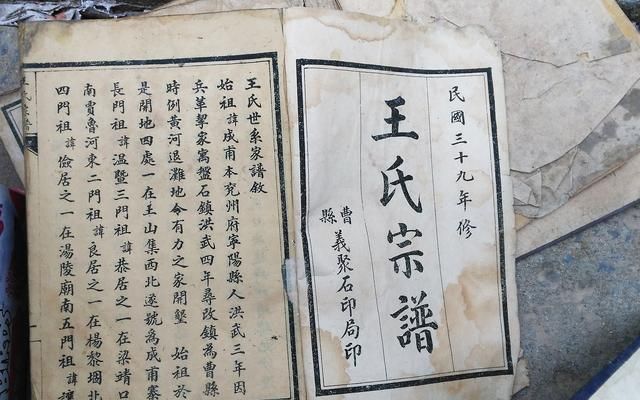 民國三十九年修
王氏宗譜
曹縣義聚石印局印
王氏世系家譜敘
始祖諱成甫本兖州府寧陽縣人洪武三年因
兵革挈家寓盤石鎮洪武四年尋改鎮為曹縣
時例黃河退灘地令有力之家開墾 始祖於
是開地四處一在王山集西北遂號為成甫寨
長門祖諱溫暨三門祖諱恭居之一在梁靖口
南賈魯河東二門祖諱良居之一在楊黎堌北
四門祖諱儉居之一在湯陵廟南五門祖諱讓